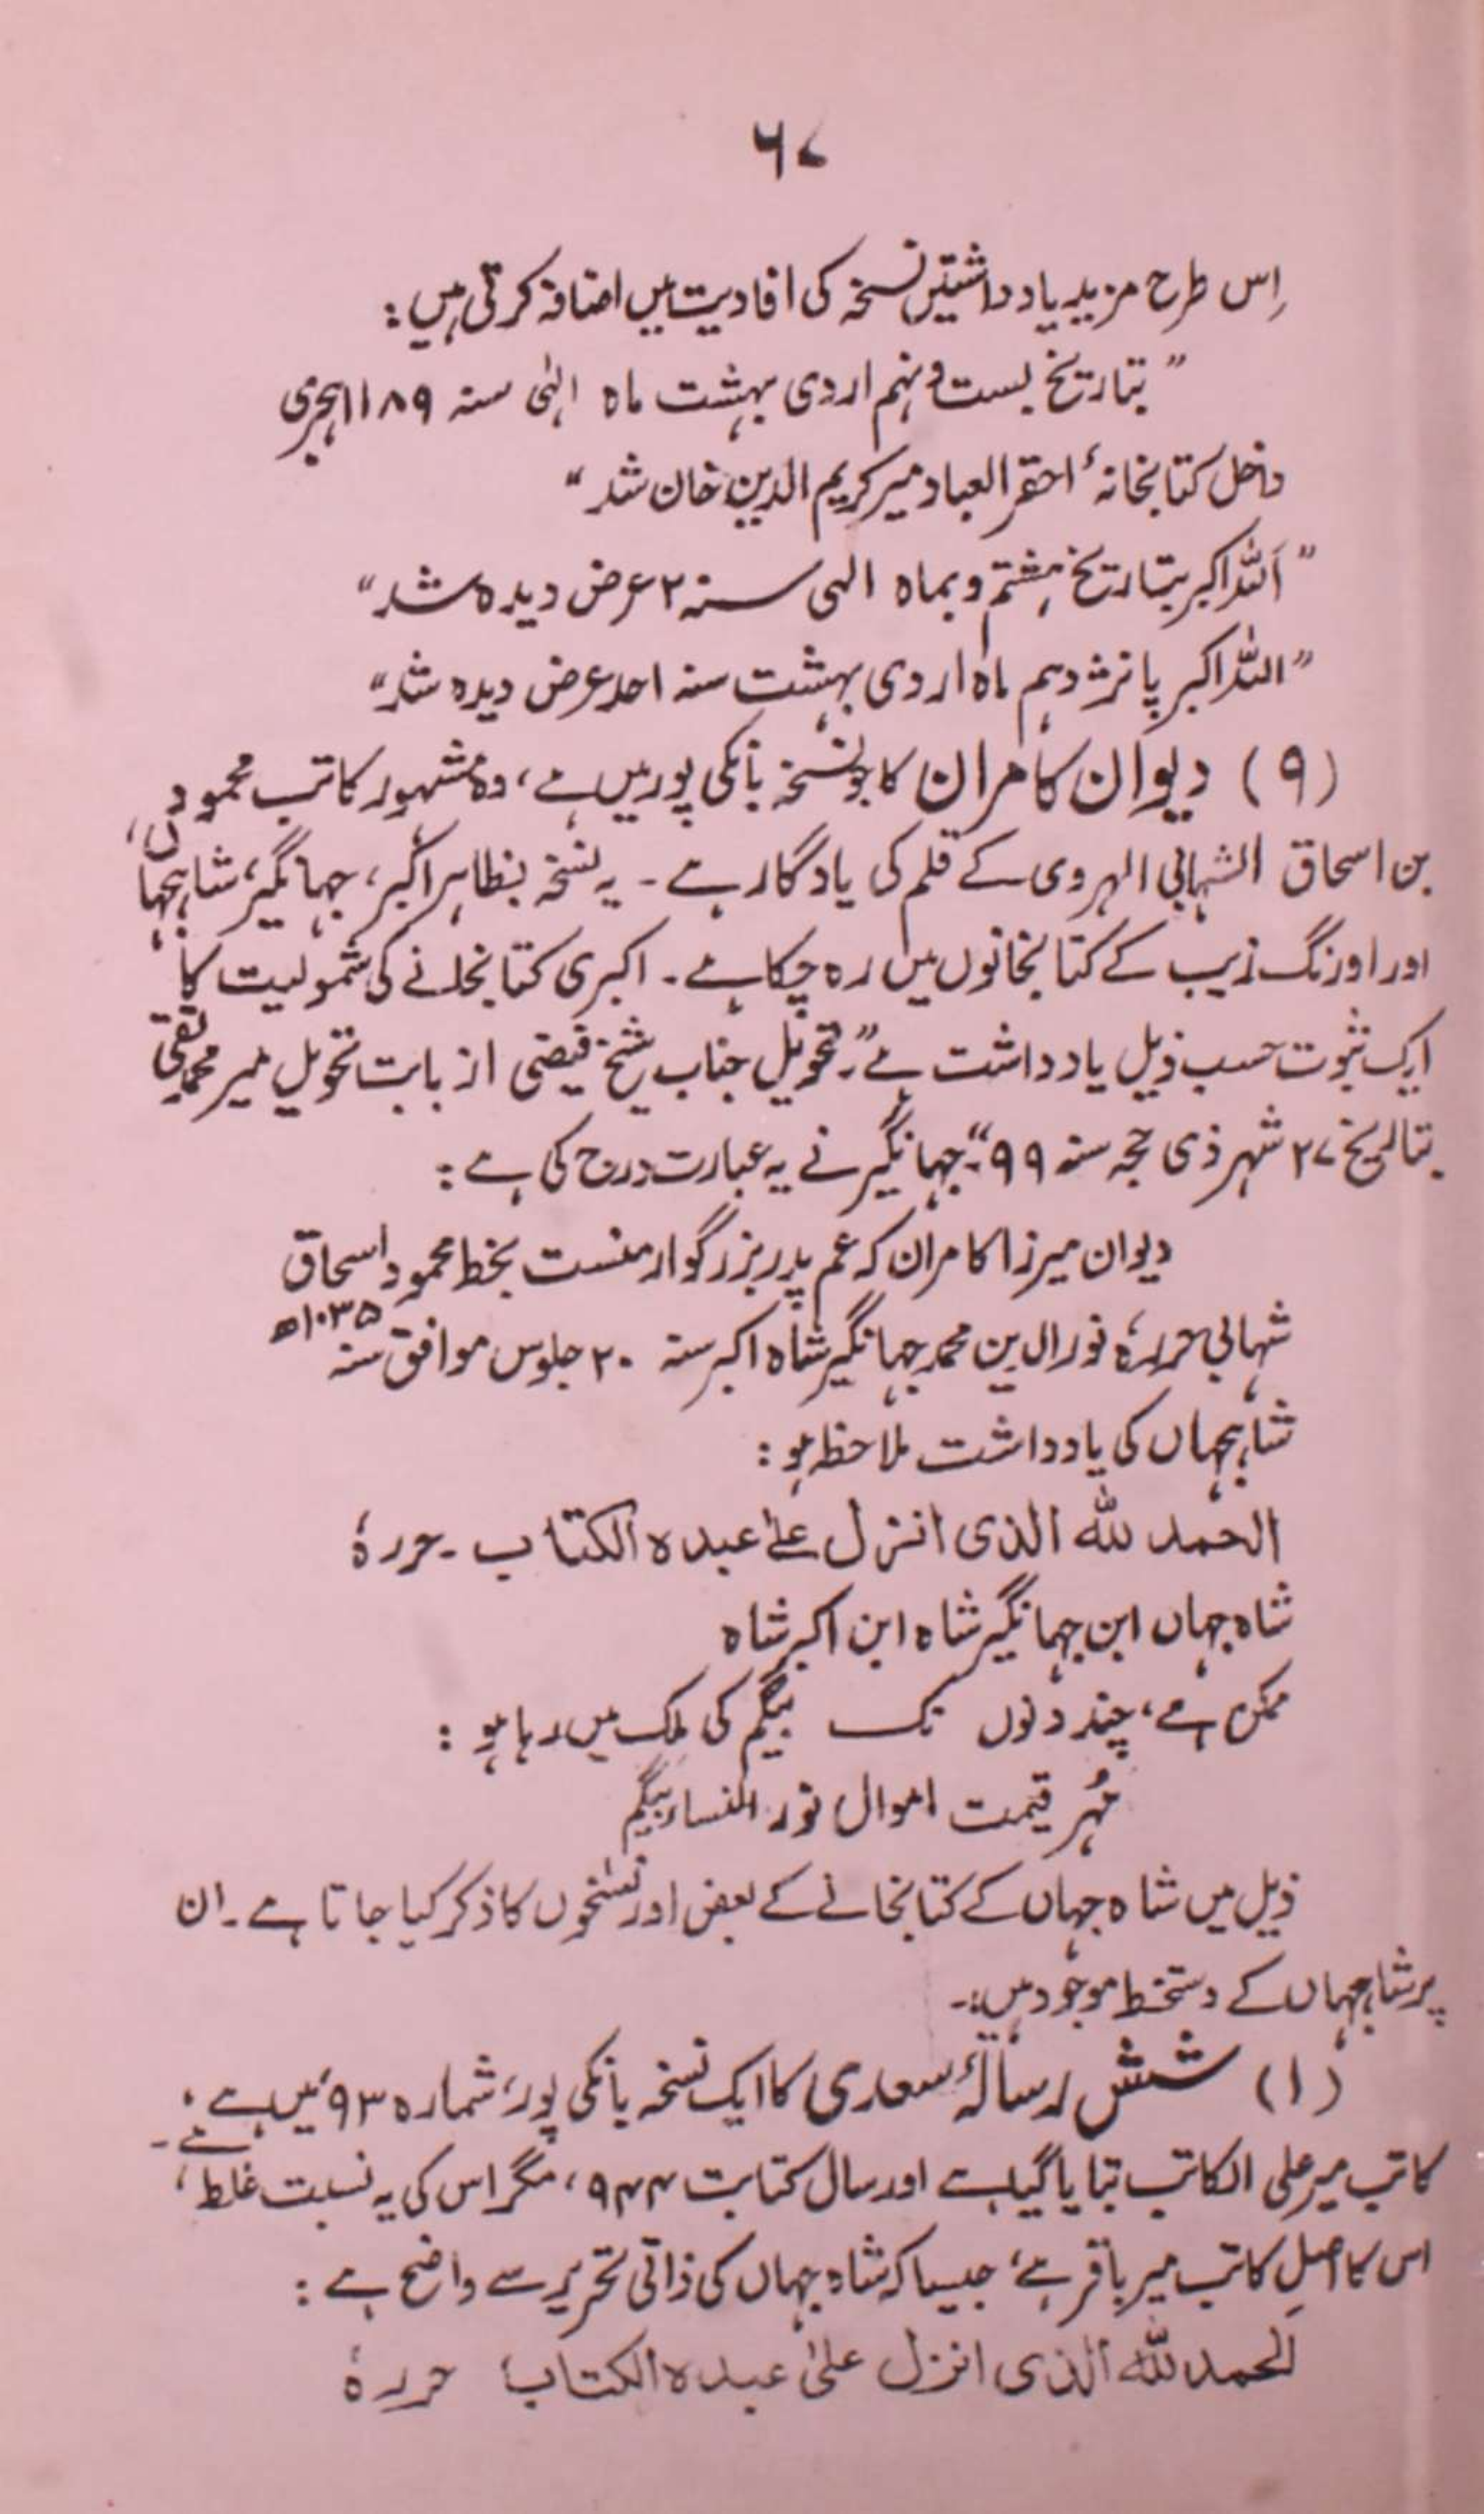 ۶۷
اِس طرح مزید یادداشتیں نسخہ کی افادیت میں اضافہ کرتی ہیں:
”بتاریخ بست و نہم اردی بہشت ماہ الٰہی سنہ ۱۱۸۹ ہجری
داخل کتابخانہٴ احقر العباد میر کریم الدین خان شد“
”اَللہ اکبر بتاریخ ہشتم و بماہ الہی سنہ ۲ عرض دیدہ شد“
”اللہ اکبر پانزدہم ماہ اردی بہشت سنہ احد عرض دیدہ شد“
(۹) دیوان کامران کا جو نسخہ بانکی پور میں ہے، وہ مشہور کاتب محمود
بن اسحاق الشہابی الہروی کے قلم کی یادگار ہے۔ یہ نسخہ بظاہر اکبر، جہانگیر، شاہجہاں،
اور اورنگ زیب کے کتابخانوں میں رہ چکا ہے۔ اکبری کتابخانے کی شمولیت کا
ایک ثبوت حسب ذیل یادداشت ہے ”۔ تحویل جناب شیخ فیضی از بابت تحویل میر محمد تقی
بتاریخ ۲۷ شہر ذی حجہ سنہ ۹۹“۔ جہانگیر نے یہ عبارت درج کی ہے:
دیوان میرزا کامران کہ عم پدر بزرگوار منست بخط محمود اسحاق
شہابی حررہٗ نورالدین محمد جہانگیر شاہ اکبر سنہ ۲۰ جلوس موافق سنہ ۱۰۳۵ھ
شاہجہاں کی یادداشت ملاحظہ ہو:
الحمد للہ الذی انزل علےٰ عبدہ الکتاب۔ حررہٗ
شاہ جہاں ابن جہانگیر شاہ ابن اکبر شاہ
ممکن ہے، چند دنوں تک بیگم کی ملک میں رہا ہو:
مُہر قیمت اموال نور النساء بیگم
ذیل میں شاہ جہاں کے کتابخانے کے بعض اور نسخوں کا ذکر کیا جاتا ہے۔ ان
پر شاہجہاں کے دستخط موجود ہیں:۔
(۱) شش رسالۂ سعدی کا ایک نسخہ بانکی پور، شمارہ ۹۳ میں ہے،
کاتب میر علی الکاتب بتایا گیا ہے اور سال کتابت ۹۴۴، مگر اس کی یہ نسبت غلط ہے۔،
اس کا اصل کاتب میر باقر ہے، جیسا کہ شاہ جہاں کی ذاتی تحریر سے واضح ہے:
الحمد للہ الذی انزل علیٰ عبدہ الکتاب حررہٗ